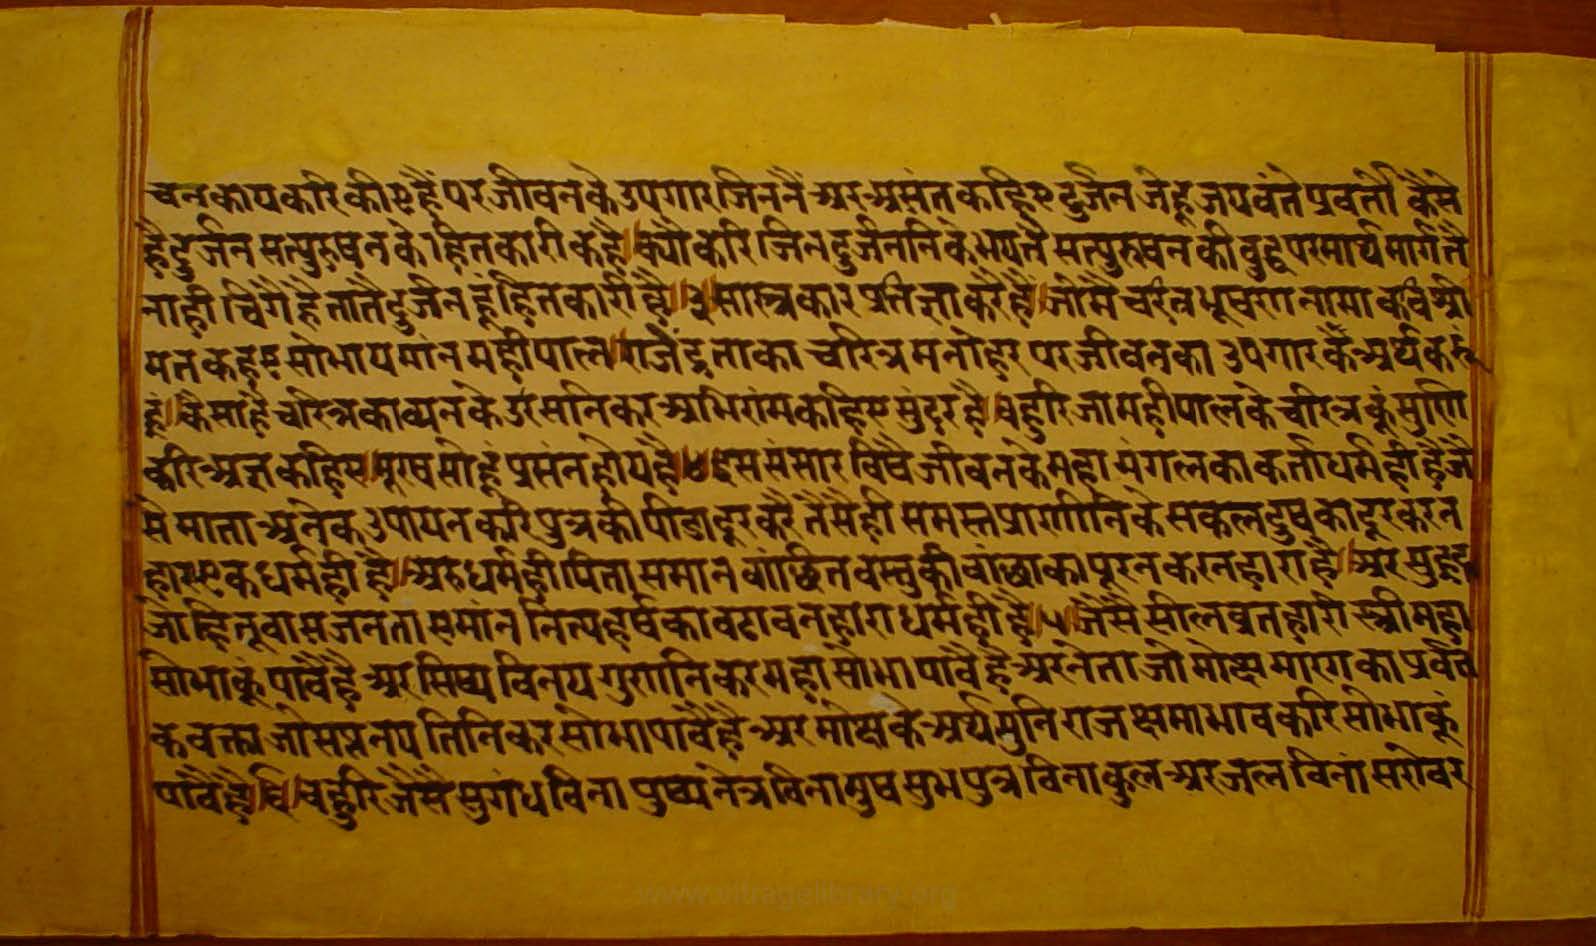 चनकाय करि कीए हैं पर जीवन के उपगार जिननैं अर असंत कहिए दुर्जन जेहू जयवंते प्रवर्तो कैसे
है दुर्जन सत्पुरुषन के हितकारी कहै॥ क्यौ करि जिन दुर्जननि के भयतै सत्पुरुषन की वुद्ध परमार्थ मार्ग तै
नाही चिगै है तातै दुर्जन हूं हितकारी है॥३॥ सास्त्रकार प्रतिज्ञा करै है॥ जो मै चरित्र भूषण नामा कवि श्री
मत कहए सोभायमांन महीपाल॥ राजेंद्र ताका चरित्र मनोहर पर जीवन का उपगार कै अर्थ करू
हूं॥ कैसा है चरित्र काव्यन के उर सनिकर अभिरांम कहिए सुंदर है॥ वहुरि जा महीपाल के चरित्र कूं सुणि
करि अज्ञ कहिए॥ मूरष सोहूं प्रसंन होय है॥४॥ इस संसार विषै जीवन के महा मंगल का कर्ता धर्म ही है जै
से माता अनेक उपायन करि पुत्र की पीडा दूर करै तैसै ही समस्त प्राणीनि के सकल दुष का दूर करन
हारा एक धर्म ही है॥ अरु धर्म ही पिता समान वांछित वस्तु की वांछा का पूरन करनहारा है॥ अर सुहृद
जो हितू वा सजन ता समांन नित्य हर्ष का वढावनहारा धर्म ही है॥५॥ जैसै सील व्रत हारी स्त्री महा
सोभा कूं पावै है अर सिष्य विनय गुणनि कर महा सोभा पावै है अर नेता जो मोक्ष मारग का प्रवर्त
क वक्ता जो सप्त नय तिनि कर सोभा पावै है अर मोक्ष के अर्थ मुनिराज क्षमाभाव करि सोभा कूं
पावै है॥६॥ वहुरि जैसै सुगंध विना पुष्प नेत्र विना मुष सुभ पुत्र विना कुल अर जल विनां सरोवर
www.vitragelibrary.org